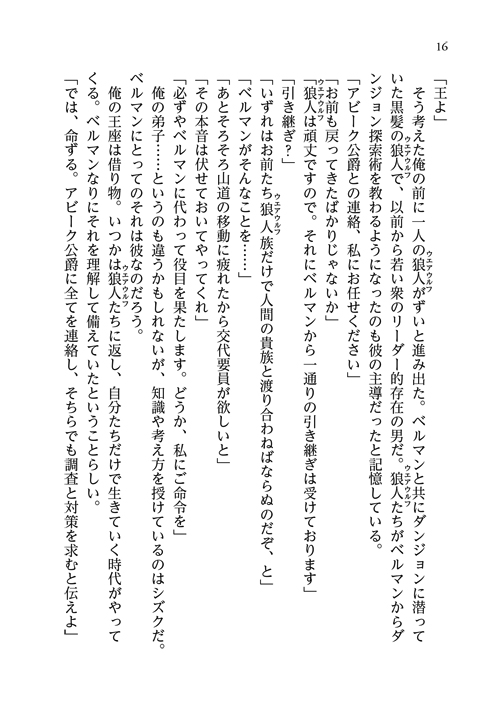 16
「王よ」
　そう考えた俺の前に一人の狼人がずいと進み出た。ベルマンと共にダンジョンに潜って
いた黒髪の狼人で、以前から若い衆のリーダー的存在の男だ。狼人たちがベルマンからダ
ンジョン探索術を教わるようになったのも彼の主導だったと記憶している。
「アビーク公爵との連絡、私にお任せください」
「お前も戻ってきたばかりじゃないか」
「狼人は頑丈ですので。それにベルマンから一通りの引き継ぎは受けております」
「引き継ぎ？」
「いずれはお前たち狼人族だけで人間の貴族と渡り合わねばならぬのだぞ、と」
「ベルマンがそんなことを……」
「あとそろそろ山道の移動に疲れたから交代要員が欲しいと」
「その本音は伏せておいてやってくれ」
「必ずやベルマンに代わって役目を果たします。どうか、私にご命令を」
　俺の弟子……というのも違うかもしれないが、知識や考え方を授けているのはシズクだ。
ベルマンにとってのそれは彼なのだろう。
　俺の王座は借り物。いつかは狼人たちに返し、自分たちだけで生きていく時代がやって
くる。ベルマンなりにそれを理解して備えていたということらしい。
「では、命ずる。アビーク公爵に全てを連絡し、そちらでも調査と対策を求むと伝えよ」
ウエアウルフ
ウエアウルフ
ウエアウルフ
ウエアウルフ
ウエアウルフ
ウエアウルフ